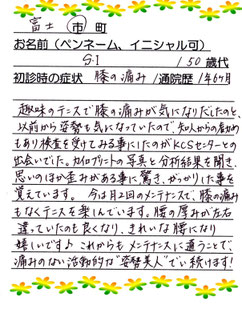 富士 市 町
お名前（ペンネーム、イニシャル可）
S.I / 50 歳代
初診時の症状 膝の痛み /通院歴 1年6ヶ月
趣味のテニスで膝の痛みが気になりだしたのと、
以前から姿勢も気になっていたので、知人からの勧め
もあり検査を受けてみる事にしたのがKCSセンターとの
出会いでした。カイロプリントの写真と分析結果を聞き、
思いのほか歪みがある事に驚き、がっかりした事を
覚えています。今は月2回のメンテナンスで、膝の痛み
もなくテニスを楽しんでいます。腰の厚みが左右
違っていたのも良くなり、きれいな腰になり
嬉しいです♪これからもメンテナンスに通うことで、
痛みのない活動的な"姿勢美人"でい続けます！